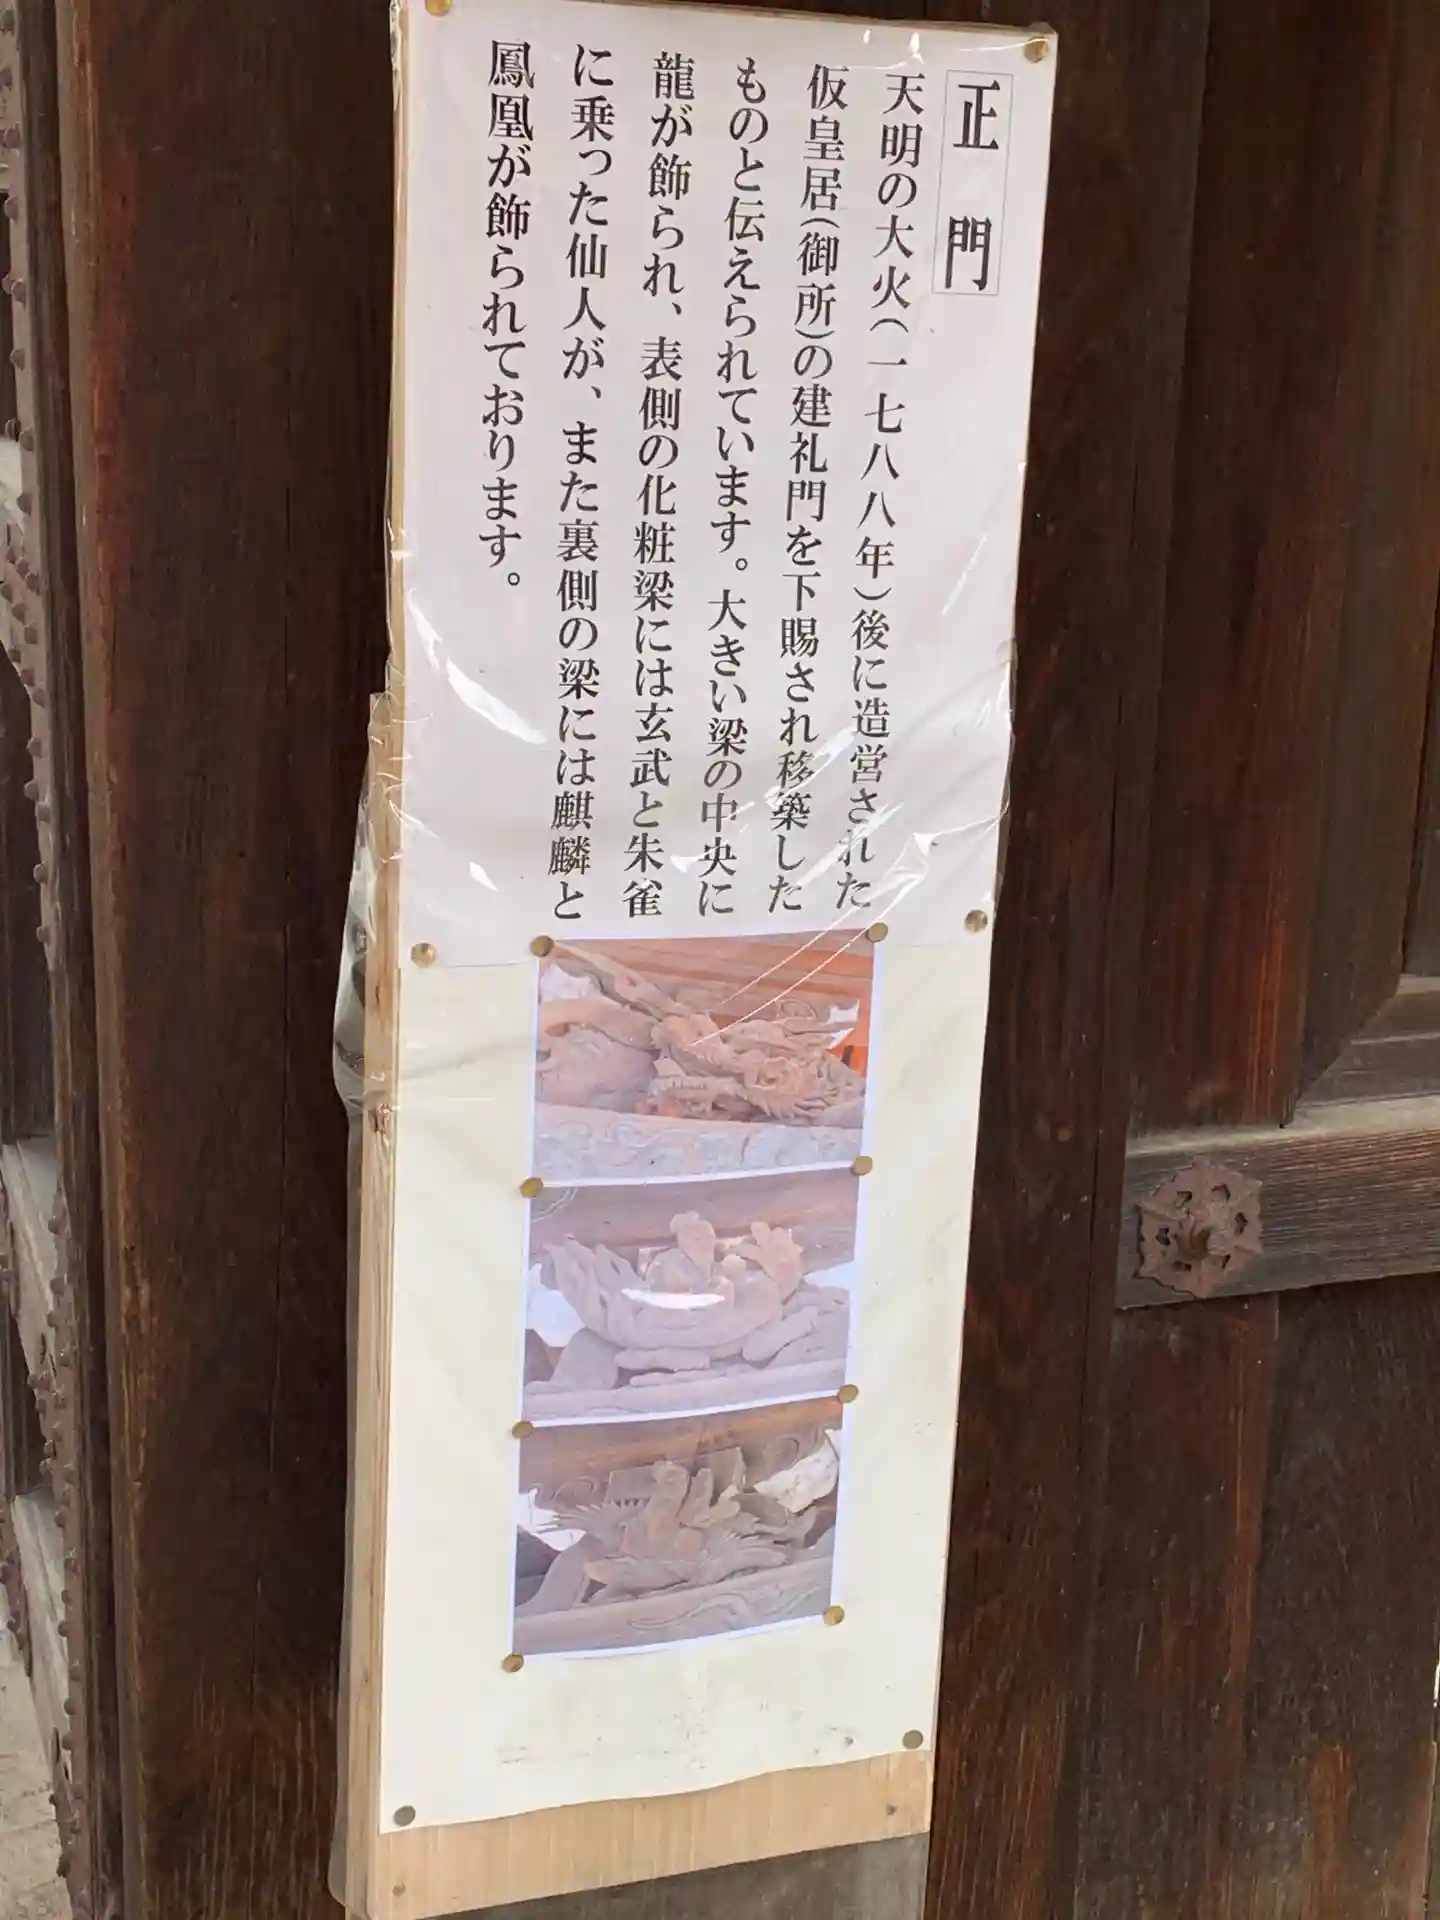 正門
天明の大火(一七八八年)後に造営された
仮皇居(御所)の建礼門を下賜され移築した
ものと伝えられています。大きい梁の中央に
龍が飾られ、表側の化粧梁には玄武と朱雀
に乗った仙人が、また裏側の梁には麒麟と
鳳凰が飾られております。